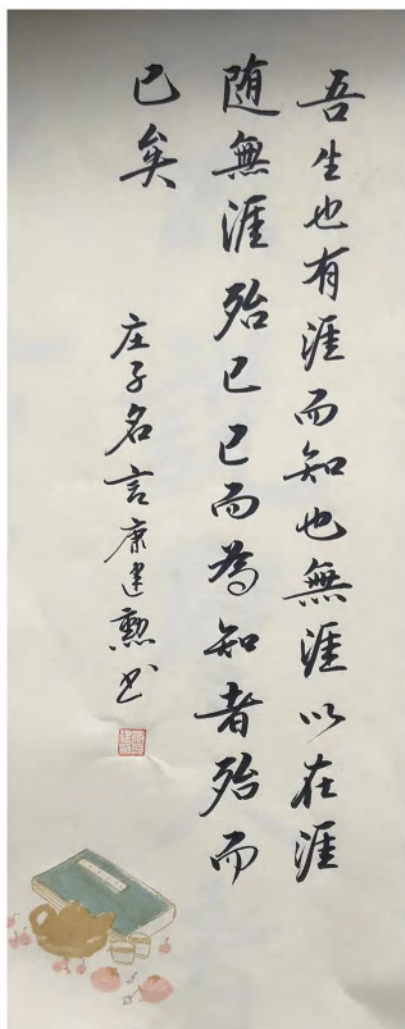 吾生也有涯而知也無涯以在涯
随無涯殆已已而為知者殆而
已矣
庄子名言康建勲书